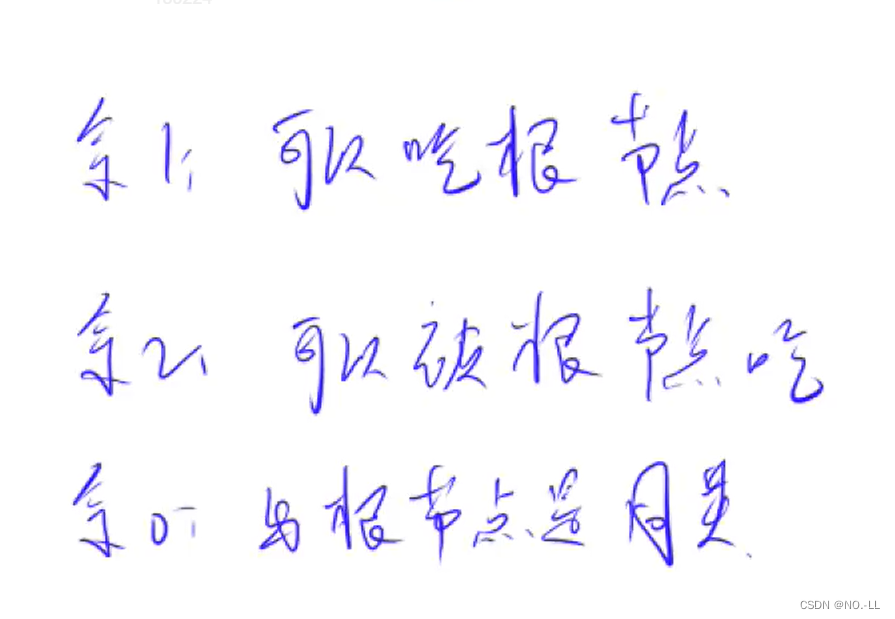 余1: 可以吃根节点.
余2: 可以被根节点吃
余0: 与根节点是同类.
CSDN @NO.-LL